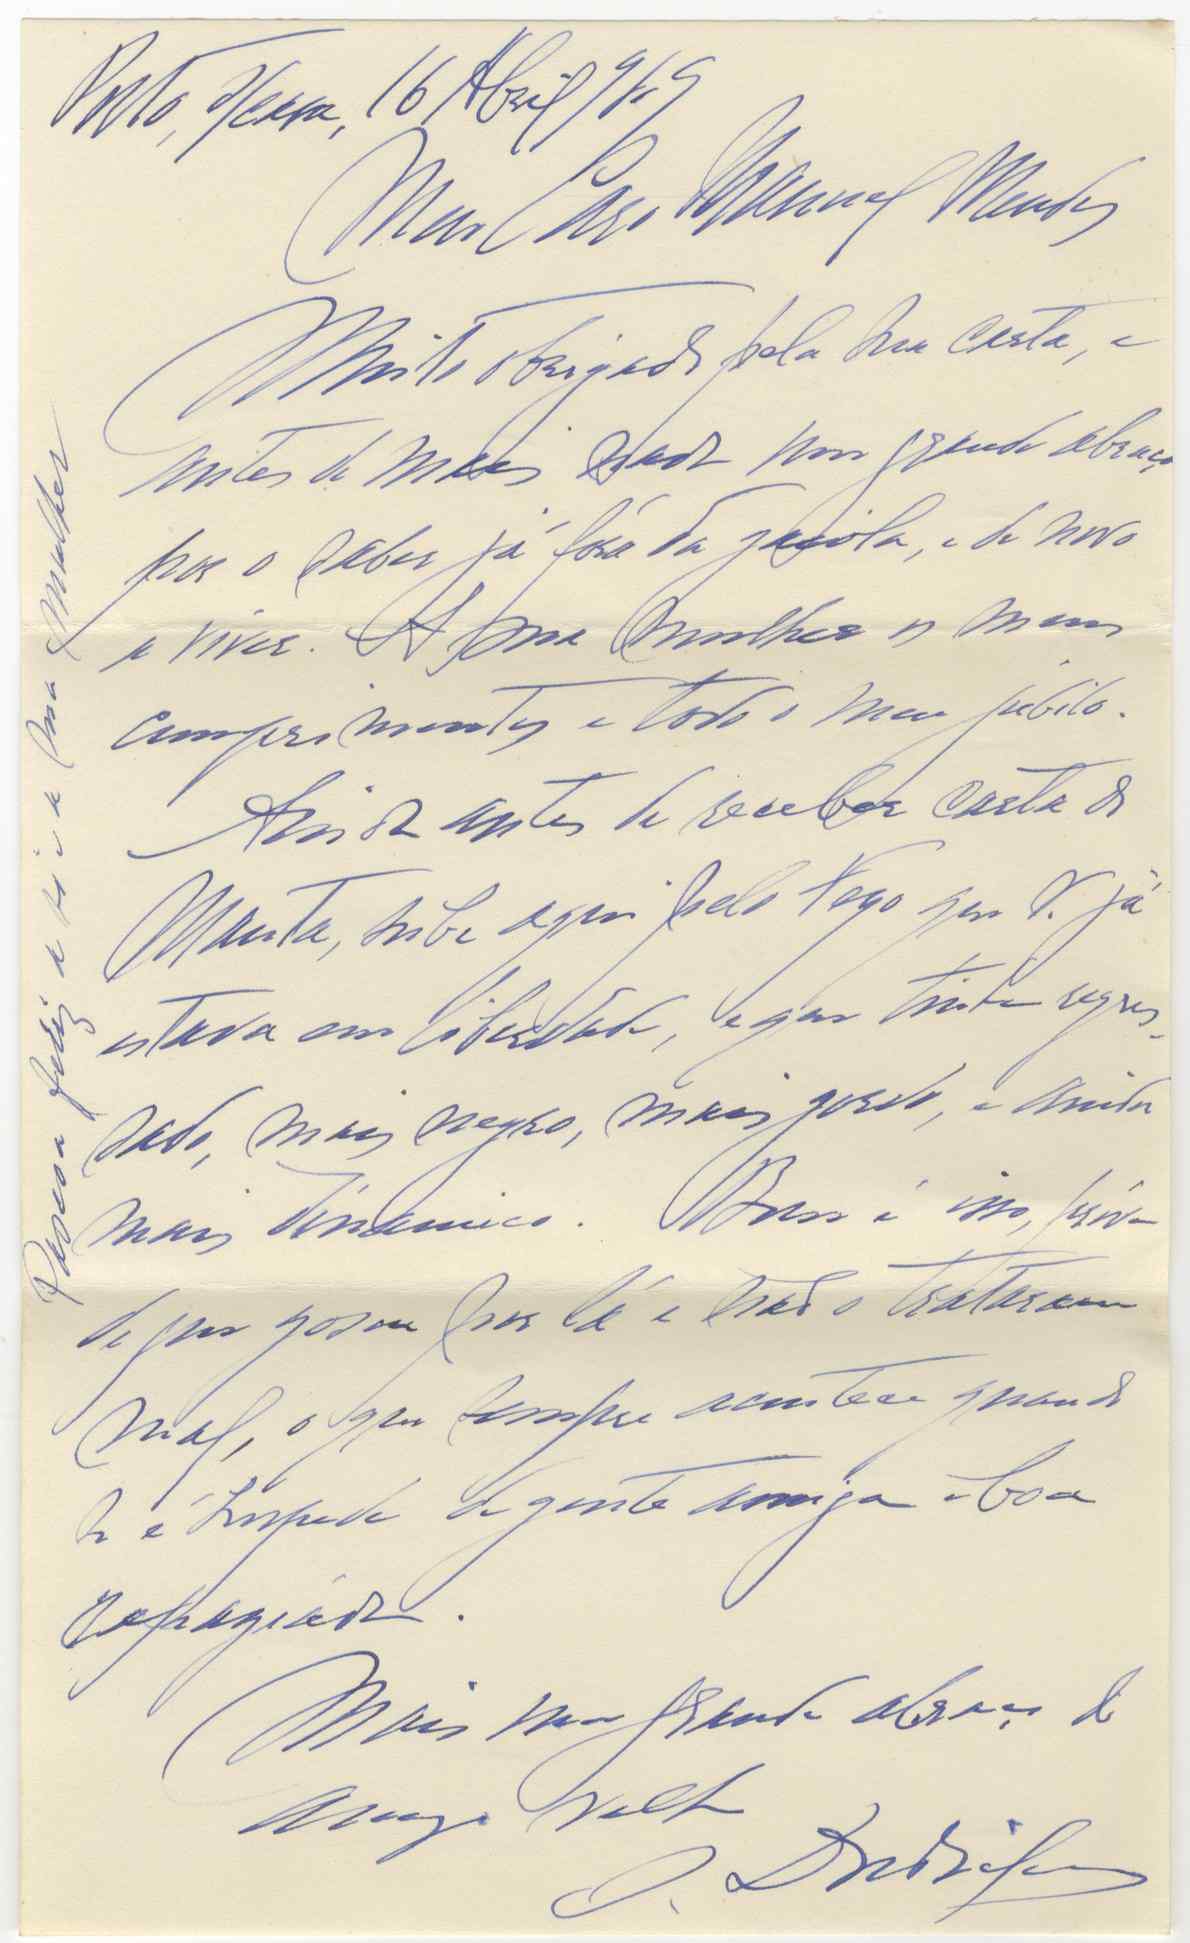 Porto, 16 Abril 969
Meu Caro Manuel Mendes
Muito obrigado pela sua carta, e
antes de mais nada um grande abraço
por o saber já fóra da gaiola, e de novo
a viver. A sua mulher os meus
cumprimentos e todo o meu júbilo.
Ainda antes de receber carta do
Manta, soube aqui pelo que V. já
estava em liberdade, e que tinha regres-
sado, mais negro, mais gordo, e ainda
mais dinamico. Bom é isso, prova
de que gosou por lá e não o trataram
mal, o que sempre acontece quando
se é hospede de gente amiga e boa
rapaziada.
Mais um grande abraço do
amigo velho
Pascoa feliz a si e a sua mulher